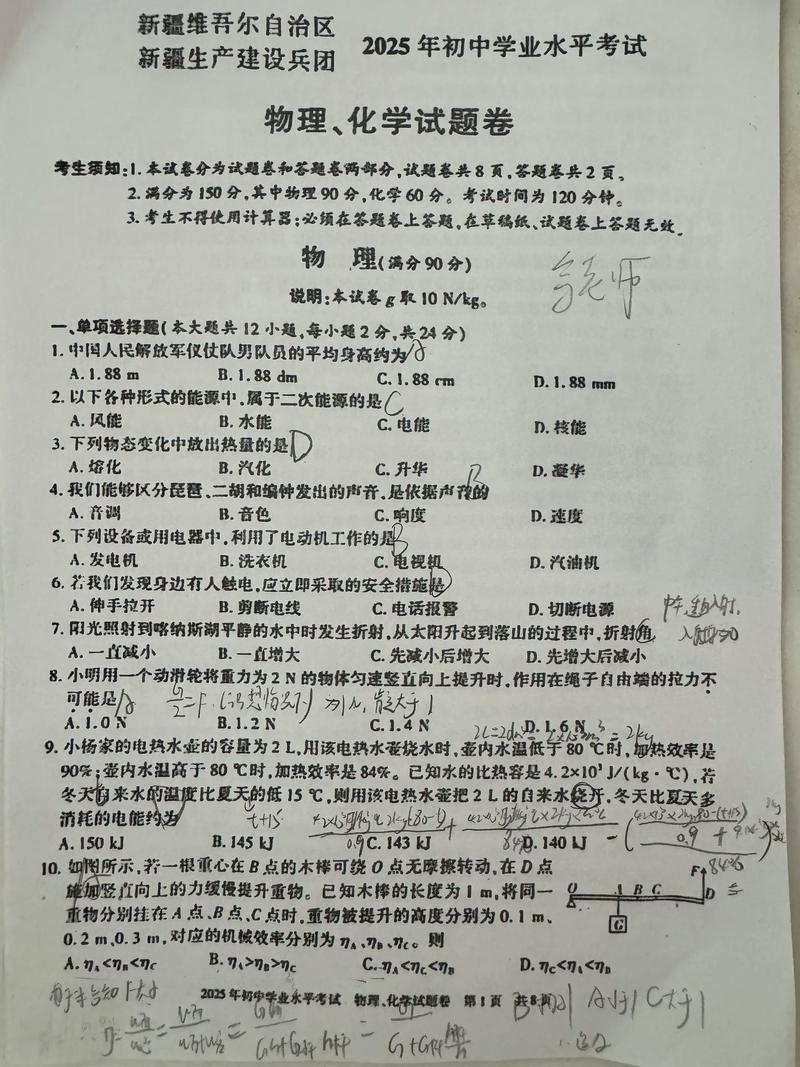 新疆维吾尔自治区
新疆生产建设兵团 2025年初中学业水平考试
物理、化学试题卷
考生须知:1.本试卷分为试题卷和答题卷两部分,试题卷共8页,答题卷共2页。
2.满分为150分,其中物理90分,化学60分。考试时间为120分钟。
3.考生不得使用计算器;必须在答题卷上答题,在草稿纸、试题卷上答题无效。
物 理(满分90分)
老师
说明:本试卷g取10 N/kg。
一、单项选择题(本大题共12小题,每小题2分,共24分)
1.中国人民解放军仪仗队男队员的平均身高约为 A
A.1.88 m B.1.88 dm C.1.88 cm D.1.88 mm
2.以下各种形式的能源中,属于二次能源的是 C
A.风能 B.水能 C.电能 D.核能
3.下列物态变化中放出热量的是 D
A.熔化 B.汽化 C.升华 D.凝华
4.我们能够区分琵琶、二胡和编钟发出的声音,是依据声音的 B
A.音调 B.音色 C.响度 D.速度
5.下列设备或用电器中,利用了电动机工作的是 B
A.发电机 B.洗衣机 C.电视机 D.汽油机
6.若我们发现身边有人触电,应立即采取的安全措施是 D
A.伸手拉开 B.剪断电线 C.电话报警 D.切断电源
7.阳光照射到喀纳斯湖平静的水中时发生折射,从太阳升起到落山的过程中,折射角
A.一直减小 B.一直增大 C.先减小后增大 D.先增大后减小
8.小明用一个动滑轮将重力为2 N的物体匀速竖直向上提升时,作用在绳子自由端的拉力不
可能是 A
A.1.0 N B.1.2 N C.1.4 N D.1.6 N
9.小杨家的电热水壶的容量为2 L,用该电热水壶烧水时,壶内水温低于80 ℃时,加热效率是
90%;壶内水温高于80 ℃时,加热效率是84%。已知水的比热容是4.2×10³ J/(kg·℃),若
冬天自来水的温度比夏天的低15 ℃,则用该电热水壶把2 L的自来水烧开,冬天比夏天多
消耗的电能约为
t+15
A.150 kJ B.145 kJ C.143 kJ D.140 kJ
10.如图所示,若一根重心在B点的木棒可绕O点无摩擦转动,在D点
施加竖直向上的力缓慢提升重物。已知木棒的长度为1 m,将同一
重物分别挂在A点、B点、C点时,重物被提升的高度分别为0.1 m、
0.2 m、0.3 m,对应的机械效率分别为ηA、ηB、ηC。则
O A B C D F G
A.ηA<ηB<ηC B.ηA>ηB>ηC C.ηA<ηC<ηB D.ηC<ηA<ηB
2025年初中学业水平考试 物理、化学试题卷 第1页 共8页